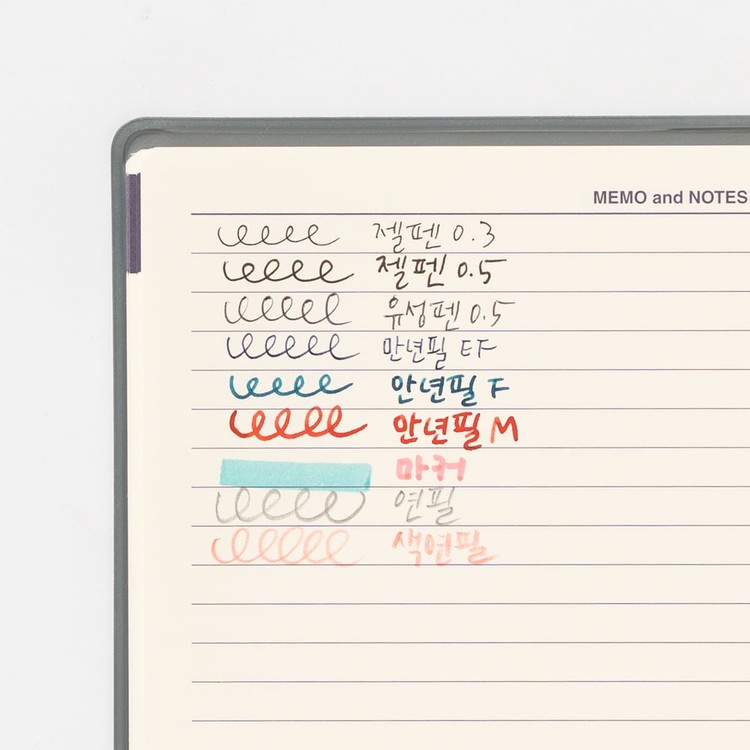 MEMO and NOTES
젤펜 0.3
젤펜 0.5
유성펜 0.5
만년필 EF
만년필 F
만년필 M
마커
연필
색연필